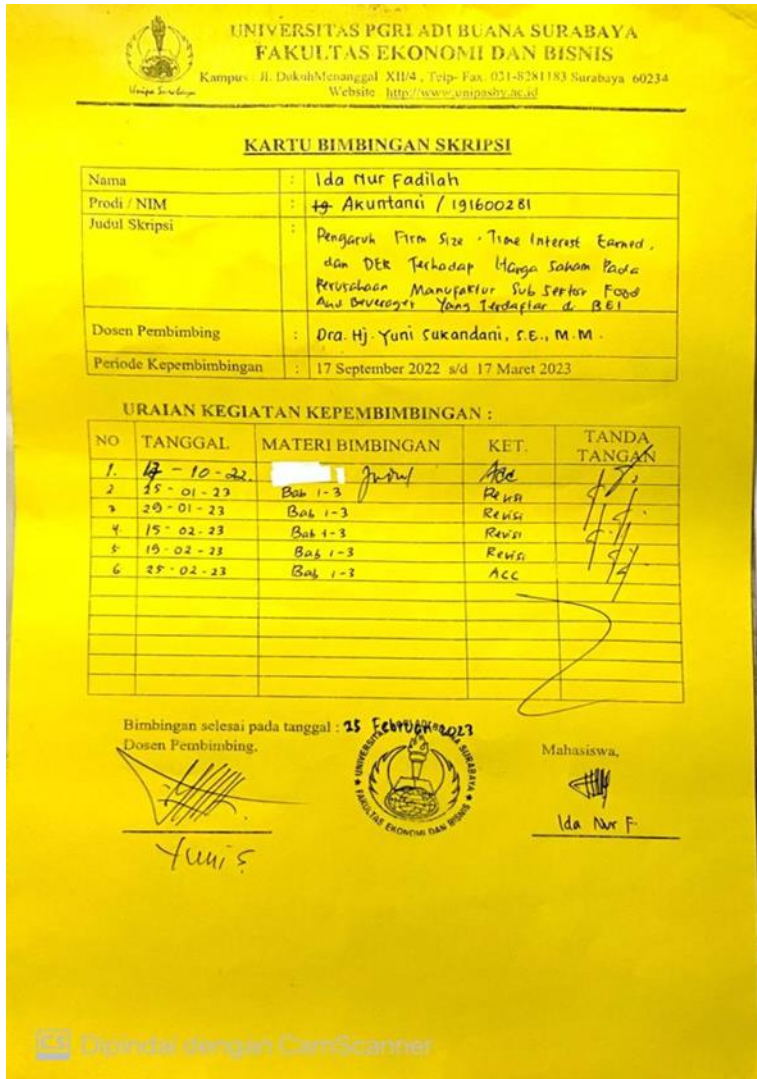 UNIVERSITAS PGRI ADI BUANA SURABAYA
FAKULTAS EKONOMI DAN BISNIS
Kampus : Jl. DukuhMenanggal XII/4 , Telp- Fax. 031-8281183 Surabaya 60234
Website http://www.unipasby.ac.id
Unipa Surabaya
KARTU BIMBINGAN SKRIPSI
Nama : Ida Nur Fadilah
Prodi / NIM : 19 Akuntansi / 191600281
Judul Skripsi : Pengaruh Firm Size, Time Interest Earned,
dan DER Terhadap Harga Saham Pada
Perusahaan Manufaktur Sub Sektor Food
And Beverages Yang Terdaftar di BEI
Dosen Pembimbing : Dra. Hj. Yuni Sukandani, S.E., M.M.
Periode Kepembimbingan : 17 September 2022 s/d 17 Maret 2023
URAIAN KEGIATAN KEPEMBIMBINGAN :
NO TANGGAL MATERI BIMBINGAN KET. TANDA TANGAN
1. 17 - 10 - 22. Judul Acc
2 25 - 01 - 23 Bab 1-3 Revisi
3 29 - 01 - 23 Bab 1-3 Revisi
4. 15 - 02 - 23 Bab 1-3 Revisi
5 19 - 02 - 23 Bab 1-3 Revisi
6 25 - 02 - 23 Bab 1-3 Acc
Bimbingan selesai pada tanggal : 25 Februari 2023
Dosen Pembimbing, Mahasiswa,
UNIVERSITAS PGRI ADI BUANA SURABAYA
FAKULTAS EKONOMI DAN BISNIS
Yuni S Ida Nur F
CS Dipindai dengan CamScanner